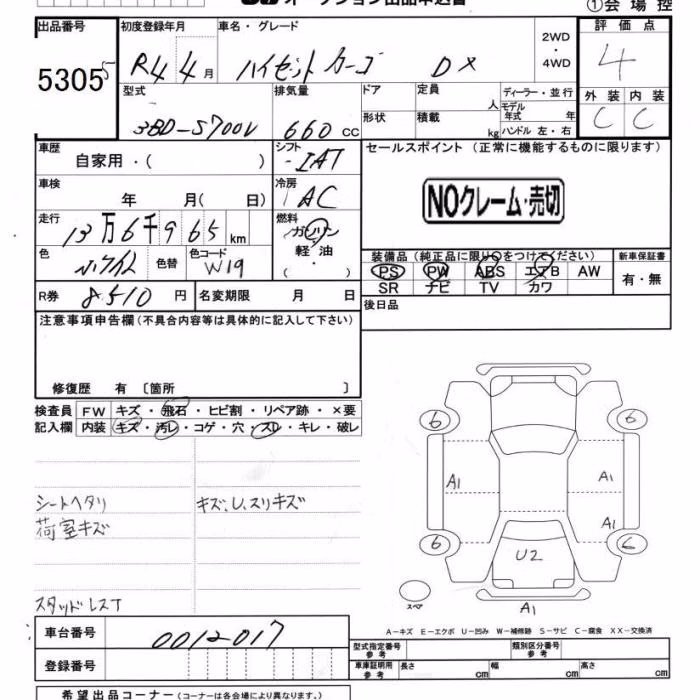 オークション出品申込書
①会場控
出品番号 5305
初度登録年月 R4 4月
車名・グレード ハイゼットカーゴ DX
2WD・4WD
評価点 4
外装 C 内装 C
型式 3BD-S700V
排気量 660 CC
ドア 形状
定員 人
積載 kg
ディーラー・並行
モデル年式 年
ハンドル 左・右
車歴 自家用・( )
シフト IAT
セールスポイント (正常に機能するものに限ります)
NOクレーム・売切
車検 年 月( 日)
冷房 AC
走行 13万6千965km
燃料 ガソリン 軽油 ・( )
色 色替 色コード W19
装備品 (純正品に限り○をつけてください)
PS PW ABS エアB AW
SR ナビ TV カワ
新車保証書 有・無
R券 8510円
名変期限 月 日
後日品
注意事項申告欄 (不具合内容等は具体的に記入して下さい)
修復歴 有 〔箇所 〕
検査員記入欄
FW キズ・飛石・ヒビ割・リペア跡・×要
内装 キズ・汚レ・コゲ・穴・スレ・キレ・破レ
シートヘタリ
荷室キズ
キズ、U、スリキズ
スタッドレスT
6 6
A1 A1
A1
6 6
U2
スペア
A1
A―キズ E―エクボ U―凹み W―補修跡 S―サビ C―腐食 XX―交換済
車台番号 0012017
登録番号
型式指定番号 参考
類別区分番号 参考
車庫証明用 参考 長さ cm 幅 cm 高さ cm
希望出品コーナー (コーナーは各会場により異なります。)